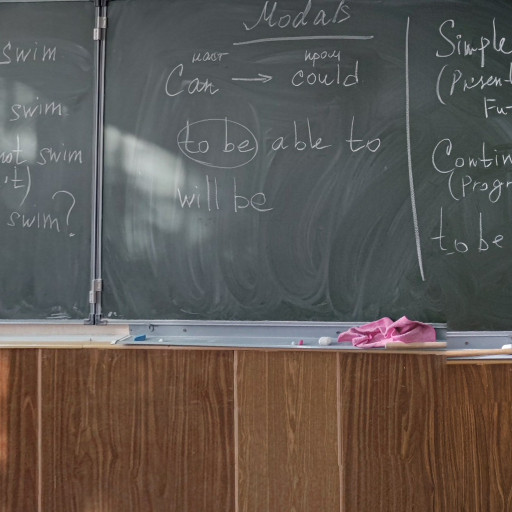 swim
swim
not swim
't)
swim?
Modals
наст прош
Can → could
to be able to
will be
Simple
(Present
Fu-
Contin
(Progr
to be